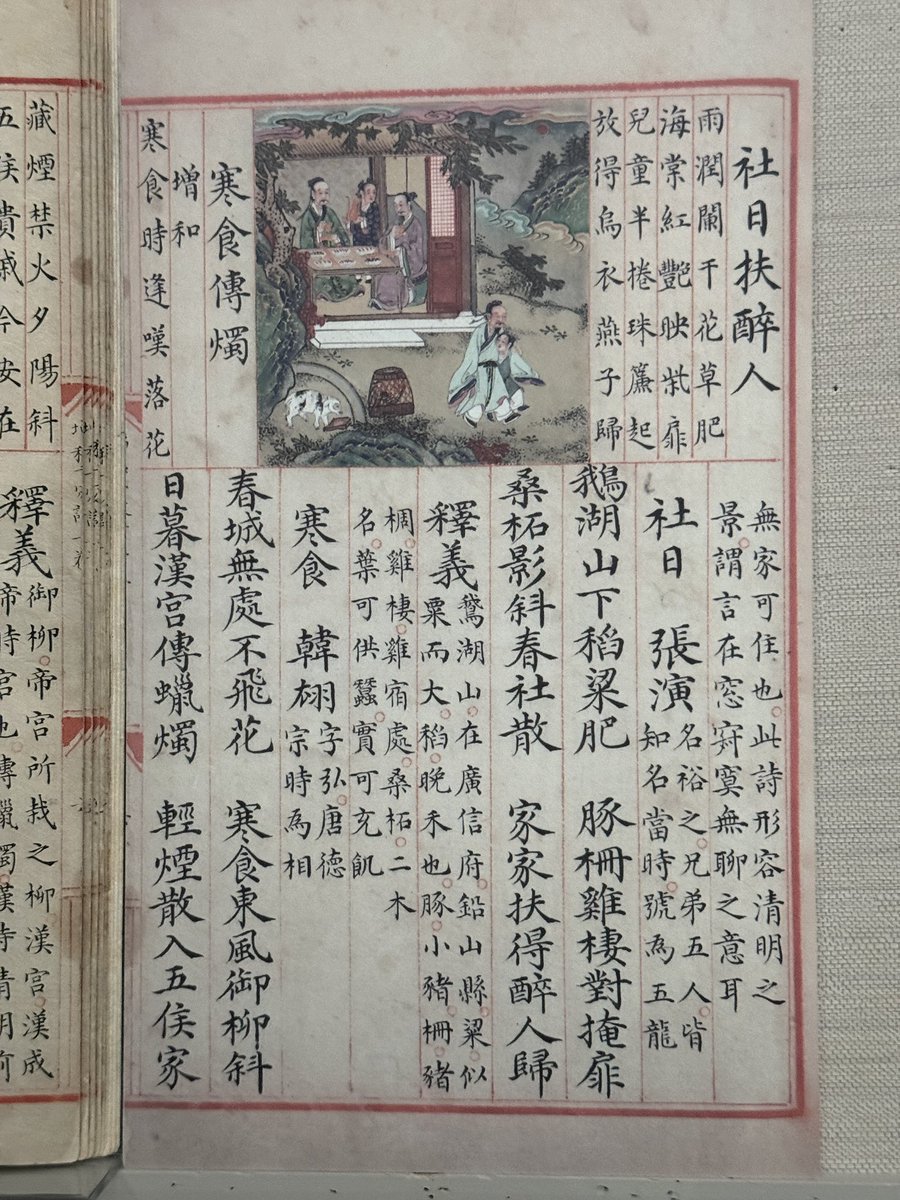 社日扶醉人
雨潤闌干花草肥
海棠紅艷映柴扉
兒童半捲珠簾起
放得烏衣燕子歸
寒食傳燭
增和
寒食時逢嘆落花
無家可住也此詩形容清明之
景謂言在窓寂寞無聊之意耳
社日 張演 名裕之兄弟五人皆
知名當時號為五龍
鵝湖山下稻粱肥 豚柵雞棲對掩扉
桑柘影斜春社散 家家扶得醉人歸
釋義 鵞湖山在廣信府鉛山縣粱似
粟而大稻晚禾也豚小豬柵豬
棩雞棲雞宿處桑柘二木
名葉可供蠶實可充飢
寒食 韓翃 字弘唐德
宗時為相
春城無處不飛花 寒食東風御柳斜
日暮漢宮傳蠟燭 輕煙散入五侯家
藏煙禁火夕陽斜
五侯貴戚今安在
釋義 御柳帝宮所栽之柳漢宮漢成
帝時宮也傳蠟燭漢時清明前